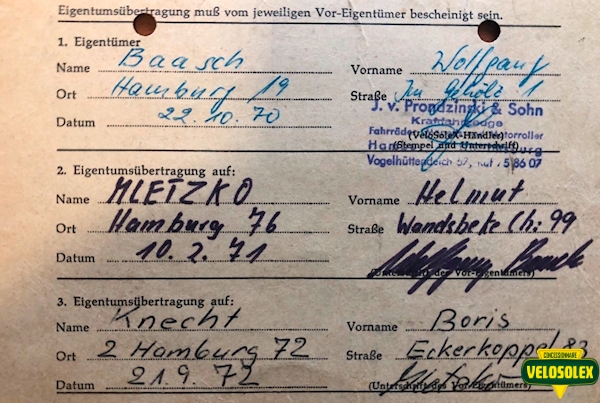 Eigentumsübertragung muß vom jeweiligen Vor-Eigentümer bescheinigt sein.
1. Eigentümer
Name Baasch Vorname Wolfgang
Ort Hamburg 19 Straße Im Gehölz 1
Datum 22.10.70
J. v. Prondzinski & Sohn
Kraftfahrzeuge
(VeloSoleX-Händler)
(Stempel und Unterschrift)
Vogelhüttendeich 57, Ruf 75 86 07
2. Eigentumsübertragung auf:
Name MLETZKO Vorname Helmut
Ort Hamburg 76 Straße Wandsbeke Ch. 99
Datum 10.2.71 Wolfgang Baasch
(Unterschrift des Vor-Eigentümers)
3. Eigentumsübertragung auf:
Name Knecht Vorname Boris
Ort 2 Hamburg 72 Straße Eckerkoppel
Datum 21.9.72
(Unterschrift des Vor-Eigentümers)
CONCESSIONNAIRE
VELOSOLEX